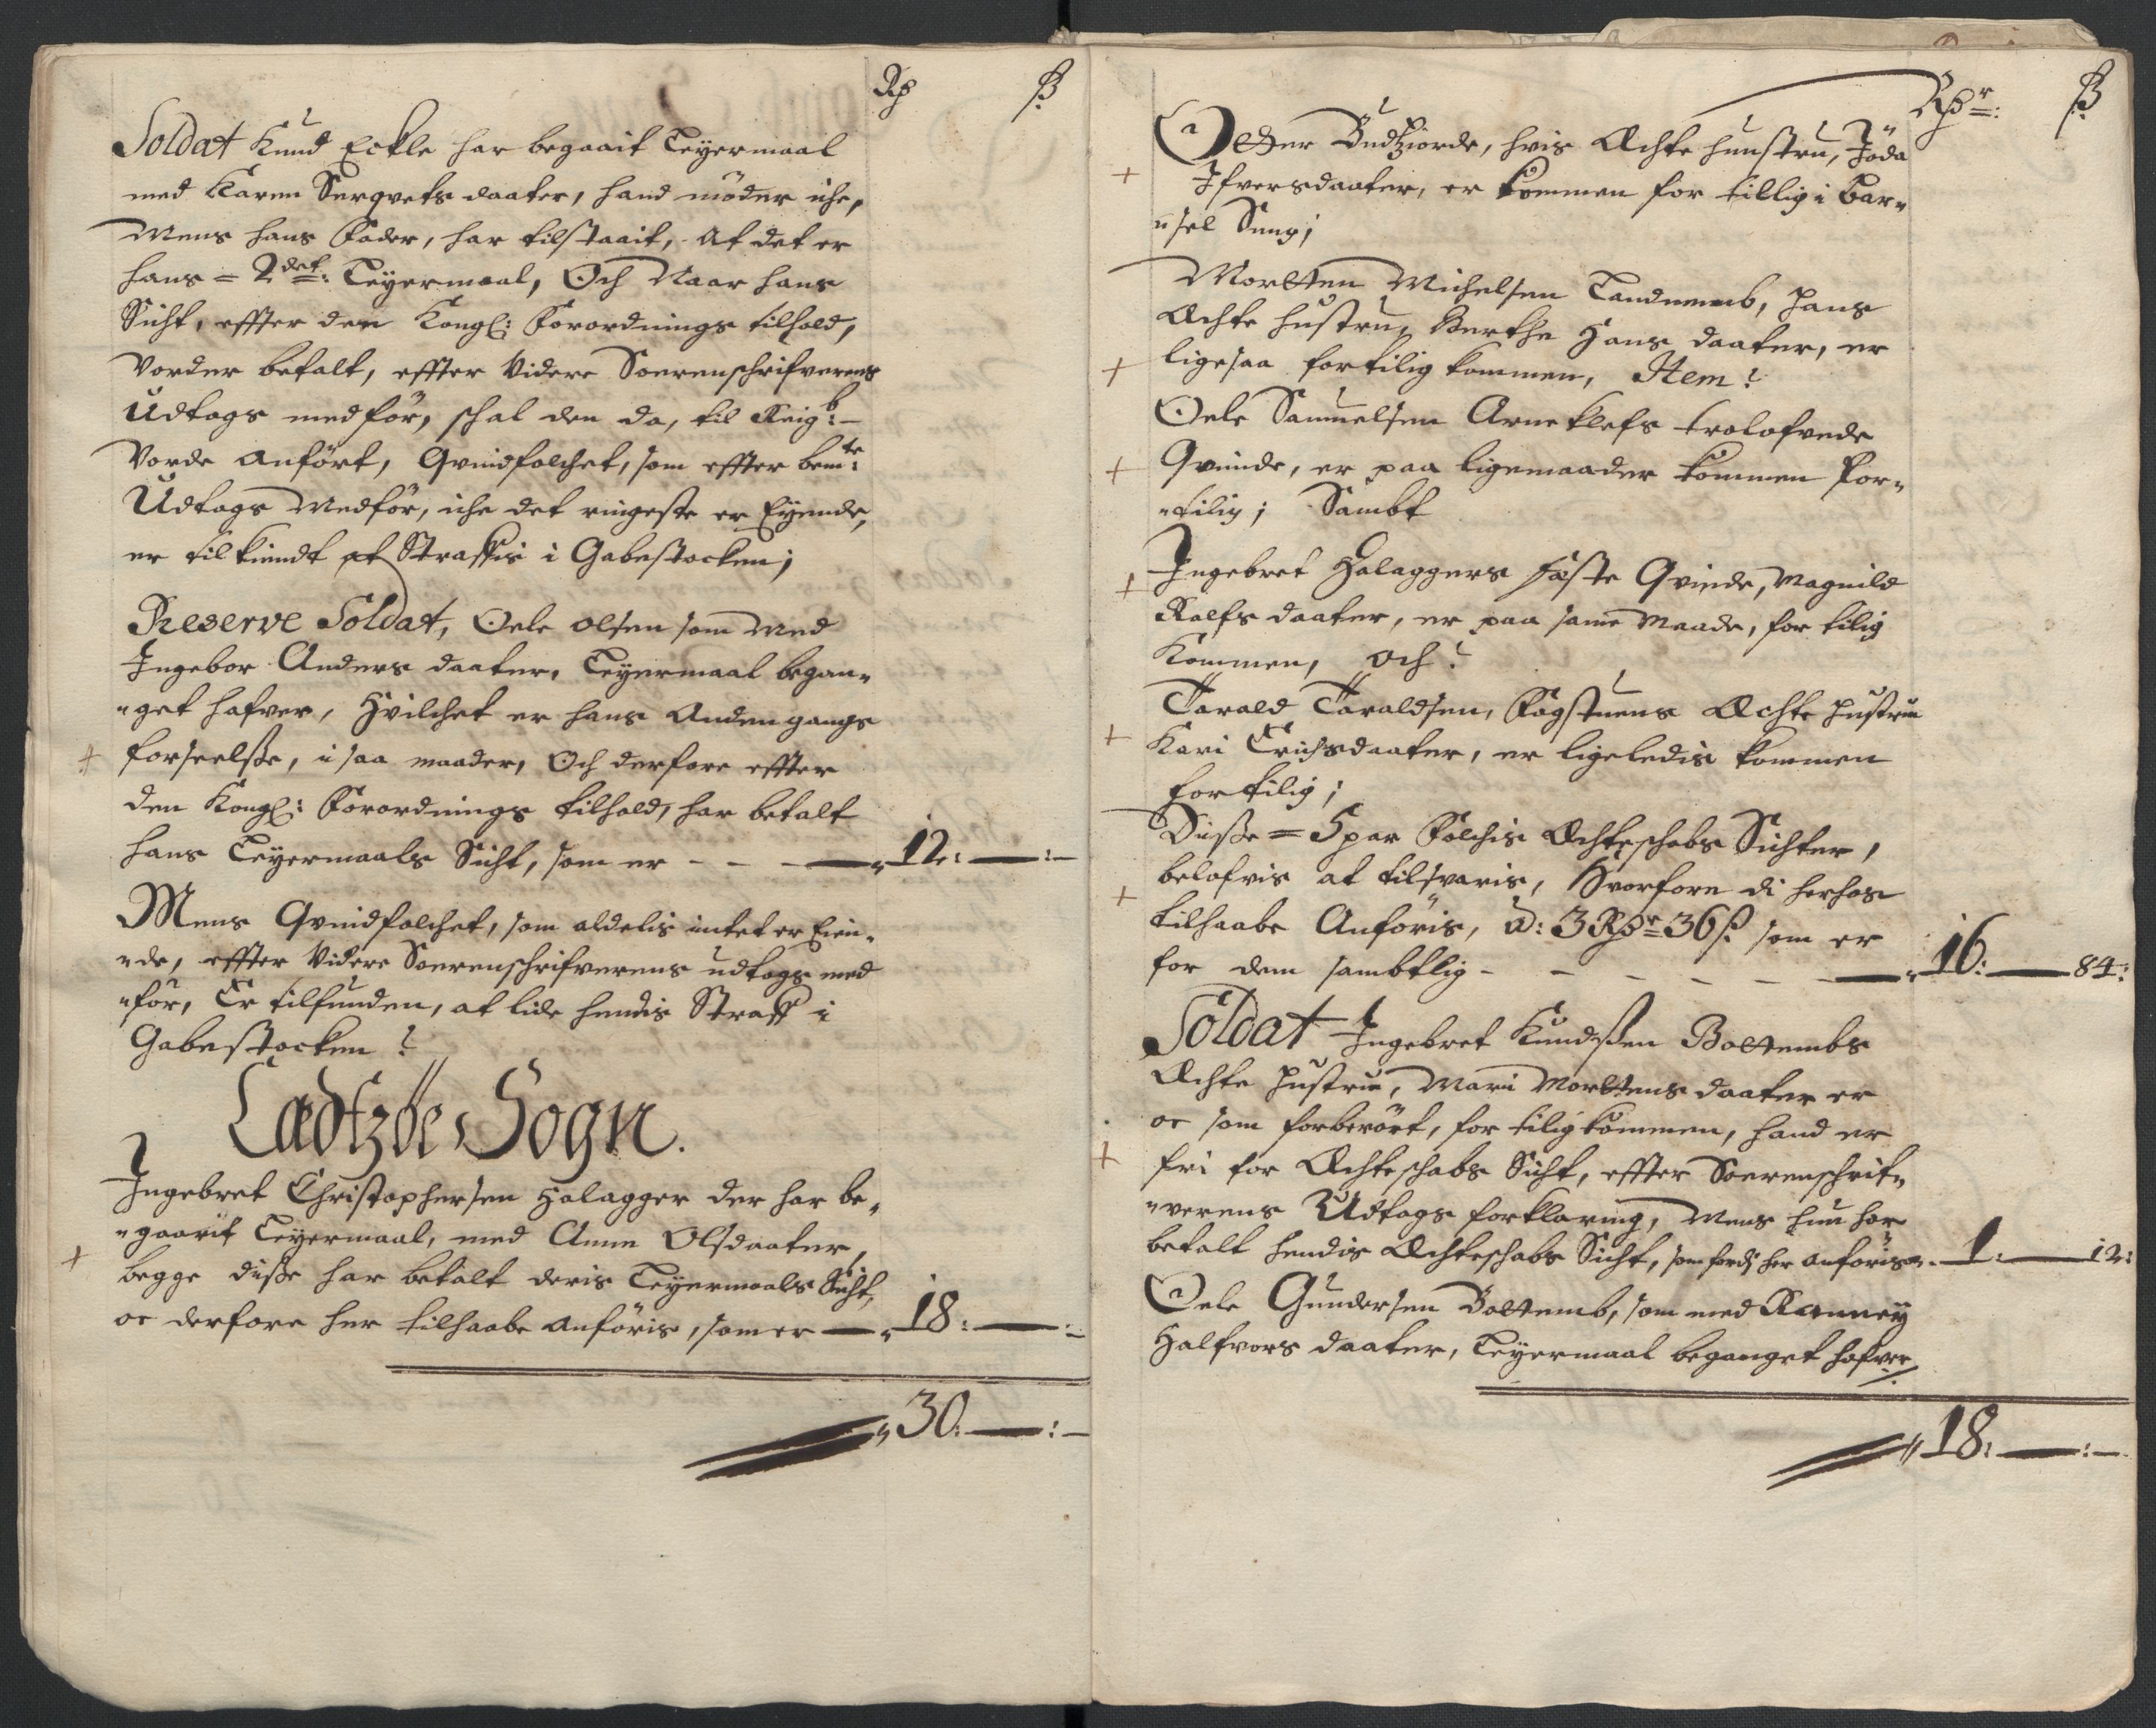 Rd ß
Soldat Knud Eckle har begaait Leyermaal
med Karen Sergvets daater, hand möder iche,
Mens hans Fader, har tilstaait, At det er
hans = 2det: Leyermaal, Och Naar hans
Sicht, effter den Kongl: Forordnings tilhold,
Vorder betalt, effter Videre Sorenschrifverens
Udtogs medför, schal den da, til Reigb:
Vorde anfört, Qvindfolchet, som effter bemte:
Udtogs Medför, iche det ringeste er Eyende,
er tilkiendt at Straffis i Gabestocken;
Reserve Soldat, Oele Olsen som Med
Ingebor Anders daater, Leyermaal began-
"get hafver, Hvilchet er hans Anden gangs
+ forseelße, i saa maader, Och derfore effter
den Kongl: Forordnings tilhold, har betalt
hans Leyermaals Sicht, som er - - - 12: - : -
Mens Qvindfolchet, som aldelis intet er Eien-
"de, effter Videre Sorenschrifverens udtogs med
"för, Er tilfunden, at lide hendis Straff i
Gabestocken
Ladtzöe Sogn.
Ingebret Christophersen Halagger der har be-
"gaait Leyermaal, med Anne Olsdaater,
+ begge disße har betalt deris Leyermaals Sicht,
oc derfore her tilhaabe anföris, som er - 18: - : -
30: - : -
Rdr: ß
Petter Budtziorde, hvis Æchte hunstru, Jöda
+ Ifversdaater, er kommen for tillig i Bar-
"sel Seng;
Mortten Michelsen Tandemb, hans
Æchte hustru, Berthe Hans daater, er
+ ligesaa fortilig kommen, Item
Oele Samuelsen Arneklefs trolofvede
+ Qvinde, er paa ligemaader kommen for-
"tilig; Sambt
+ Ingebret Halaggers fæste Qvinde, Magnild
Rolfs daater, er paa same Maade, for tilig
Kommen, och
Tarald Taraldsen, Fogstuens Æchte hustru
+ Kari Erichsdaater, er ligeledis kommen
fortilig;
Disße = 5 par Folchis Æchteschabs Sichter,
+ belofvis at tilsvaris, Hvorfore di herhos
tilhaabe Anföris, á: 3 Rdr 36 ß som er
for dem sambtlig - - - - - 16: - 84:
Soldat Ingebret Knudsßen Boltembs
Æchte hustru, Mari Morttens daater er
oc som forberört, for tilig kommen, hand er
+ fri for Æchteschabs Sicht, effter Sorenschrif-
"verens Udtogs forklaring, Mens hun har
betalt hendis Æchteschabs Sicht, som fordi her anföris - 1: - 12:
Oele Gundersen Boltemb, som med Ranney
Halfvors daater, Leyermaal beganget hafver
18: - : -